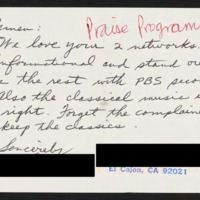 Praise Program
We love your 2 networks.
informational and stand ou
e the rest with PBS seco
Also the classical music i
right. Forget the complain
keep the classics.
Sincerely
El Cajon, CA 92021